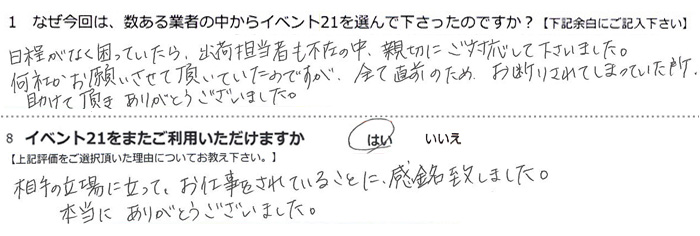 1 なぜ今回は、数ある業者の中からイベント21を選んで下さったのですか？【下記余白にご記入下さい】
日程がなく困っていたら、出荷担当者も不在の中、親切にご対応して下さいました。
何社かお願いさせて頂いていたのですが、全て直前のため、お断りされてしまっていた所、
助けて頂き ありがとうございました。
8 イベント21をまたご利用いただけますか はい いいえ
【上記評価をご選択頂いた理由についてお教え下さい。】
相手の立場に立って、お仕事をされていることに、感銘致しました。
本当に ありがとうございました。